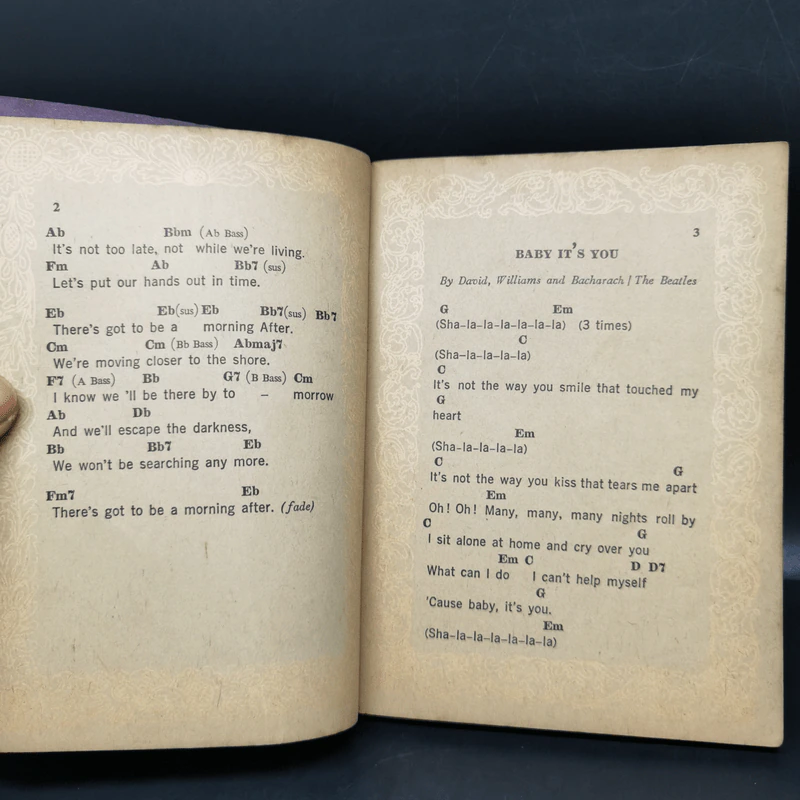 2
Ab Bbm (Ab Bass)
It's not too late, not while we're living.
Fm Ab Bb7 (sus)
Let's put our hands out in time.
Eb Eb(sus) Eb Bb7(sus) Bb7
There's got to be a morning After.
Cm Cm (Bb Bass) Abmaj7
We're moving closer to the shore.
F7 (A Bass) Bb G7 (B Bass) Cm
I know we 'll be there by to – morrow
Ab Db
And we'll escape the darkness,
Bb Bb7 Eb
We won't be searching any more.
Fm7 Eb
There's got to be a morning after. (fade)
3
BABY IT'S YOU
By David, Williams and Bacharach / The Beatles
G Em
(Sha-la-la-la-la-la-la) (3 times)
C
(Sha-la-la-la-la)
C
It's not the way you smile that touched my
G
heart
Em
(Sha-la-la-la-la)
C G
It's not the way you kiss that tears me apart
Em
Oh! Oh! Many, many, many nights roll by
C G
I sit alone at home and cry over you
Em C D D7
What can I do I can't help myself
G
'Cause baby, it's you.
Em
(Sha-la-la-la-la-la-la)